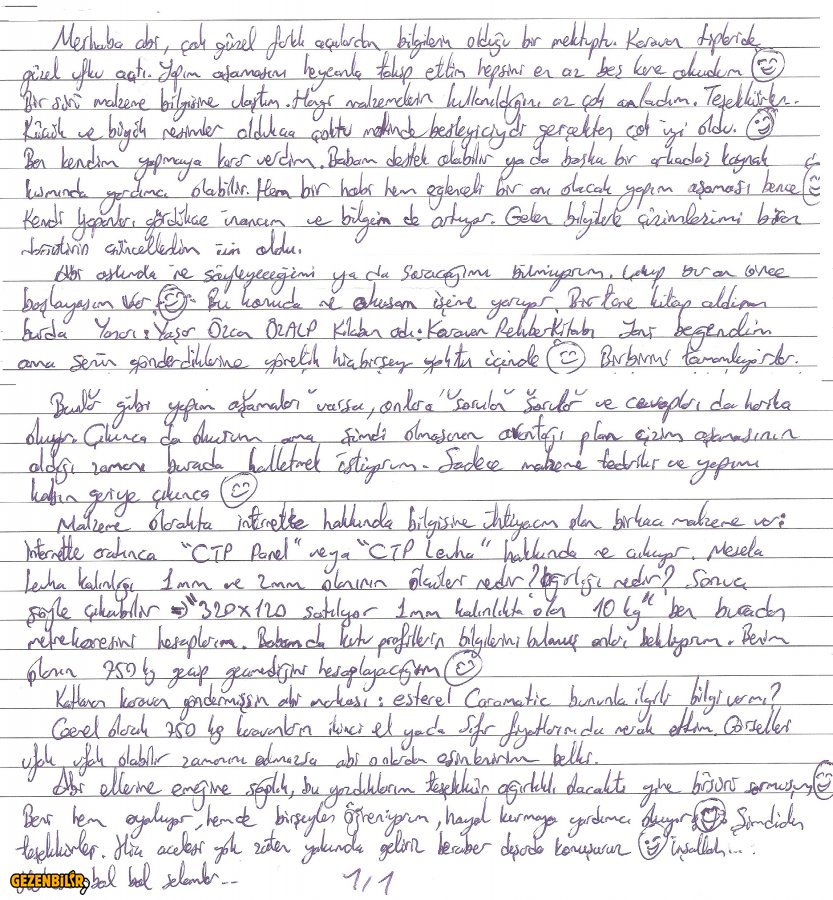 Merhaba abi, çok güzel farklı açılardan bilgilerin olduğu bir mektuptu. Karavan tipleride
güzel ufku açtı. Yapım aşamasını heycanla takip ettim hepsini en az beş kere okudum
Bir sürü malzeme bilgisine ulaştım. Hangi malzemelerin kullanıldığını az çok anladım. Teşekkürler.
Küçük ve büyük resimler oldukça çoktu besleyiciydi gerçekten çok iyi oldu.
Ben kendim yapmaya karar verdim. Babam destek olabilir ya da başka bir arkadaş kaynak
kısmında yardımcı olabilir. Hem bir hobi hem eğlenceli bir anı olacak yapım aşaması bence
Kendi yapanları gördükçe inancım ve bilgim de artıyor. Gelen bilgilerle çizimlerimi
güncelledim oldu.
Abi aslında ne söyleyeceğimi ya da soracağımı bilmiyorum. bir an önce
başlayasım var. Bu konuda ne okusam işime yarıyor. Bir tane kitap aldım
burda Yazarı: Yaşar Özcan ÖZALP Kitabın adı: Karavan Rehber Kitabı beğendim
ama senin gönderdiklerine yönelik hiçbirşey yoktu içinde Birbirini tamamlıyorlar.
Bunlar gibi yapım aşamaları varsa, onlara "sorulan sorular" ve cevapları da harika
oluyor. Çıkınca da okurum ama şimdi olmasının avantajı plan çizim aşamasının
olduğu zamanı burada halletmek istiyorum. Sadece malzeme tedariki ve yapımı
kalsın geriye çıkınca
Malzeme olarakta internette hakkında bilgisine ihtiyacım olan birkaç malzeme var:
İnternette aratınca "CTP Panel" veya "CTP Levha" hakkında ne çıkıyor. Mesela
Levha kalınlığı 1mm ve 2mm olanının ölçüleri nedir? Ağırlığı nedir? Sonuç
şöyle çıkabilir => "320x120 satılıyor 1mm kalınlıkta olan 10 kg" ben buradan
metrekaresini hesaplarım. Babamda kutu profillerin bilgilerini bulmuş onları bekliyorum. Benim
planın 750 kg geçip geçmediğini hesaplayacağım
Katlanan karavan göndermişsin abi markası: esterel Caramatic bununla ilgili bilgi varmı?
Genel olarak 750 kg karavanların ikinci el yada sıfır fiyatlarını da merak ettim. Görselleri
ufak ufak olabilir zamanını almazsa abi onlardan esinlenirim belki.
Abi ellerine emeğine sağlık, bu yazdıklarım teşekkür ağırlıklı olacaktı yine bisürü sormuşum
Beni hem oyalıyor, hemde birşeyler öğreniyorum, hayal kurmaya yardımcı oluyor Şimdiden
teşekkürler. Hiç acelesi yok zaten yakında gelirim beraber dışarda konuşuruz inşallah...
bol bol selamlar...
1/1
GEZENBİLİR